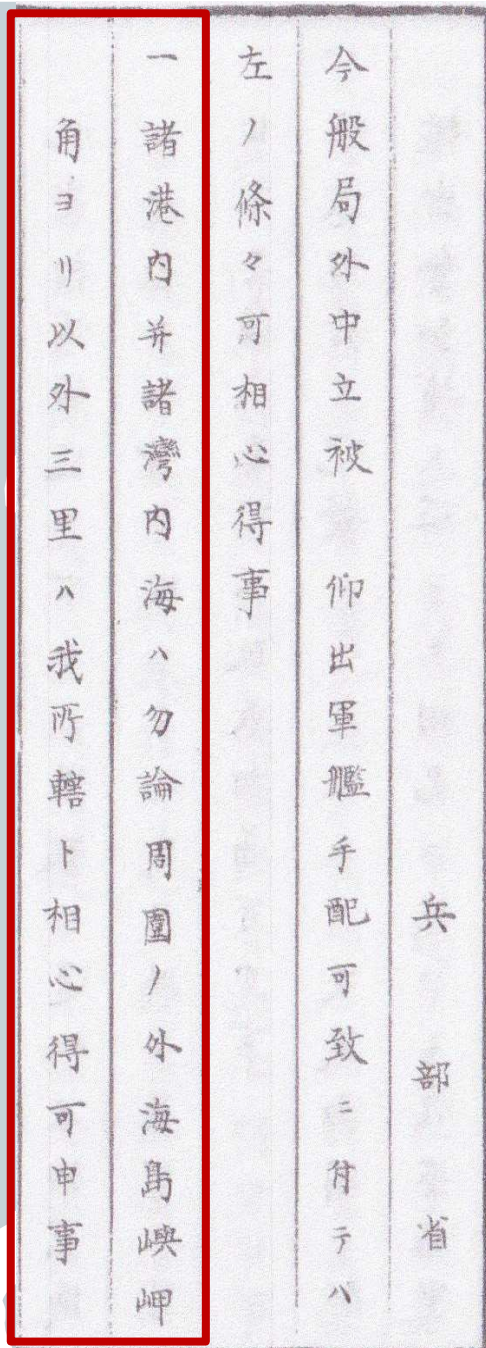 兵部省
今般局外中立被　仰出軍艦手配可致ニ付テハ
左ノ條々可相心得事
一諸港内并諸灣内海ハ勿論周圍ノ外海島嶼岬
角ヨリ以外三里ハ我所轄ト相心得可申事